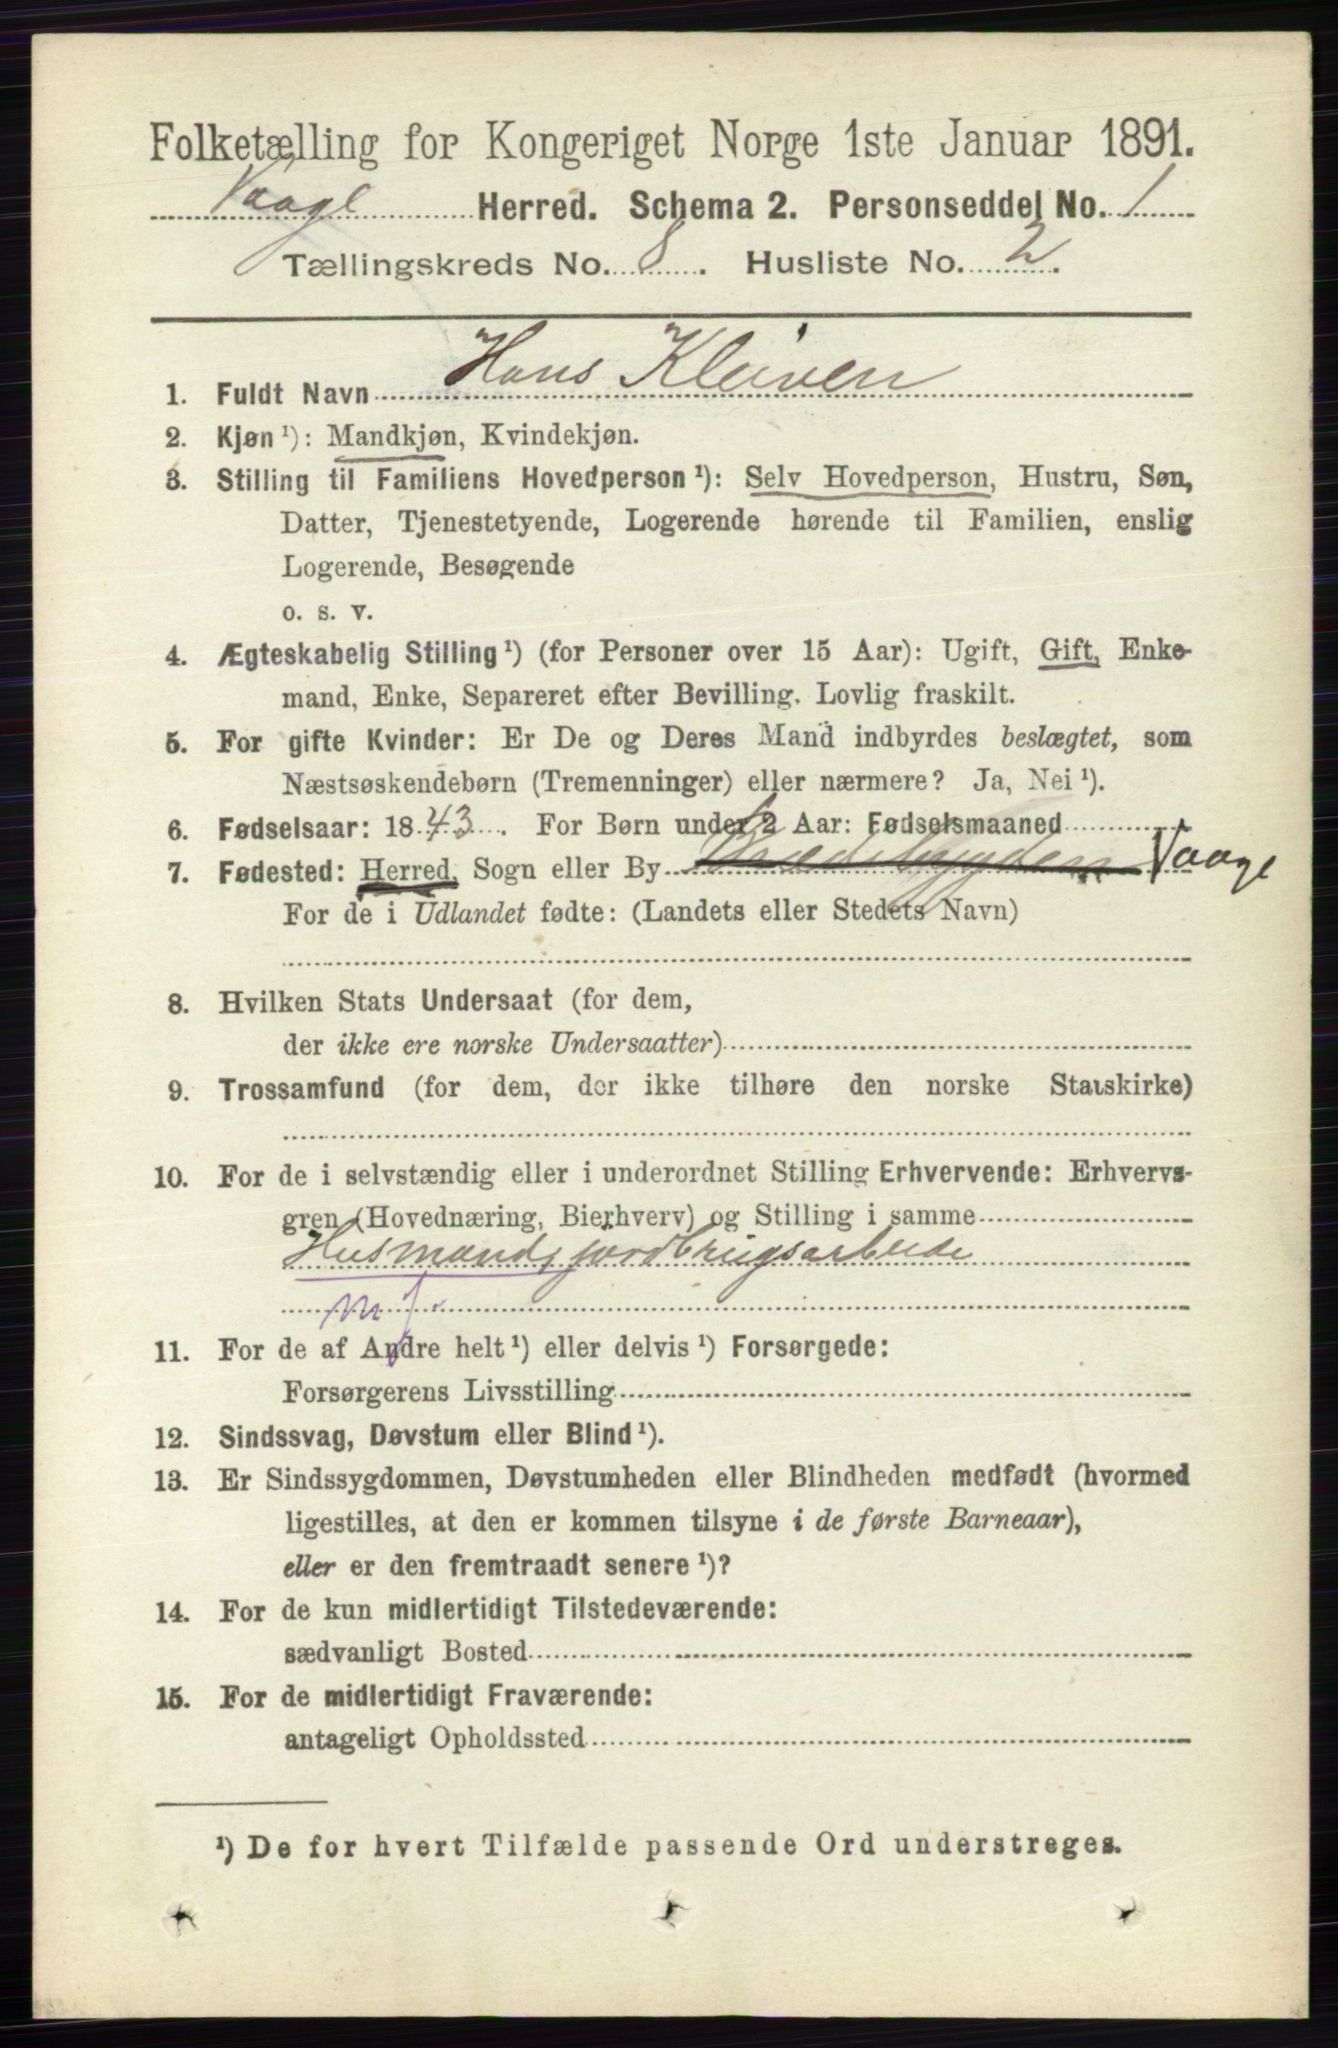 Folketælling for Kongeriget Norge 1ste Januar 1891.
Vaage Herred. Schema 2. Personseddel No. 1
Tællingskreds No. 8. Husliste No. 2.
1. Fuldt Navn Hans Kleiven
2. Kjøn ¹): Mandkjøn, Kvindekjøn.
3. Stilling til Familiens Hovedperson ¹): Selv Hovedperson, Hustru, Søn,
Datter, Tjenestetyende, Logerende hørende til Familien, enslig
Logerende, Besøgende
o. s. v.
4. Ægteskabelig Stilling ¹) (for Personer over 15 Aar): Ugift, Gift, Enke-
mand, Enke, Separeret efter Bevilling. Lovlig fraskilt.
5. For gifte Kvinder: Er De og Deres Mand indbyrdes beslægtet, som
Næstsøskendebørn (Tremenninger) eller nærmere? Ja, Nei ¹).
6. Fødselsaar: 1843. For Børn under 2 Aar: Fødselsmaaned
7. Fødested: Herred, Sogn eller By Vaage
For de i Udlandet fødte: (Landets eller Stedets Navn)
8. Hvilken Stats Undersaat (for dem,
der ikke ere norske Undersaatter)
9. Trossamfund (for dem, der ikke tilhøre den norske Statskirke)
10. For de i selvstændig eller i underordnet Stilling Erhvervende: Erhvervs-
gren (Hovednæring, Bierhverv) og Stilling i samme
Husmand, jordbrugsarbeide
m j.
11. For de af Andre helt ¹) eller delvis ¹) Forsørgede:
Forsørgerens Livsstilling
12. Sindssvag, Døvstum eller Blind ¹).
13. Er Sindssygdommen, Døvstumheden eller Blindheden medfødt (hvormed
ligestilles, at den er kommen tilsyne i de første Barneaar),
eller er den fremtraadt senere ¹)?
14. For de kun midlertidigt Tilstedeværende:
sædvanligt Bosted
15. For de midlertidigt Fraværende:
antageligt Opholdssted
¹) De for hvert Tilfælde passende Ord understreges.